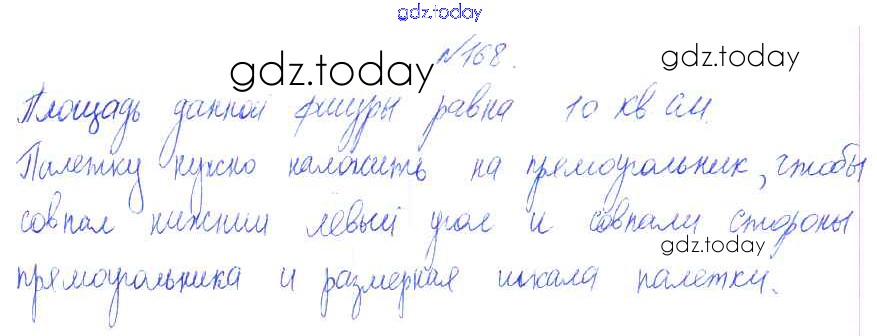 gdz.today
№168.
gdz.today gdz.today
Площадь данной фигуры равна 10 кв см.
Палетку нужно наложить на прямоугольник, чтобы
совпал нижний левый угол и совпали стороны
gdz.today
прямоугольника и размерная шкала палетки.